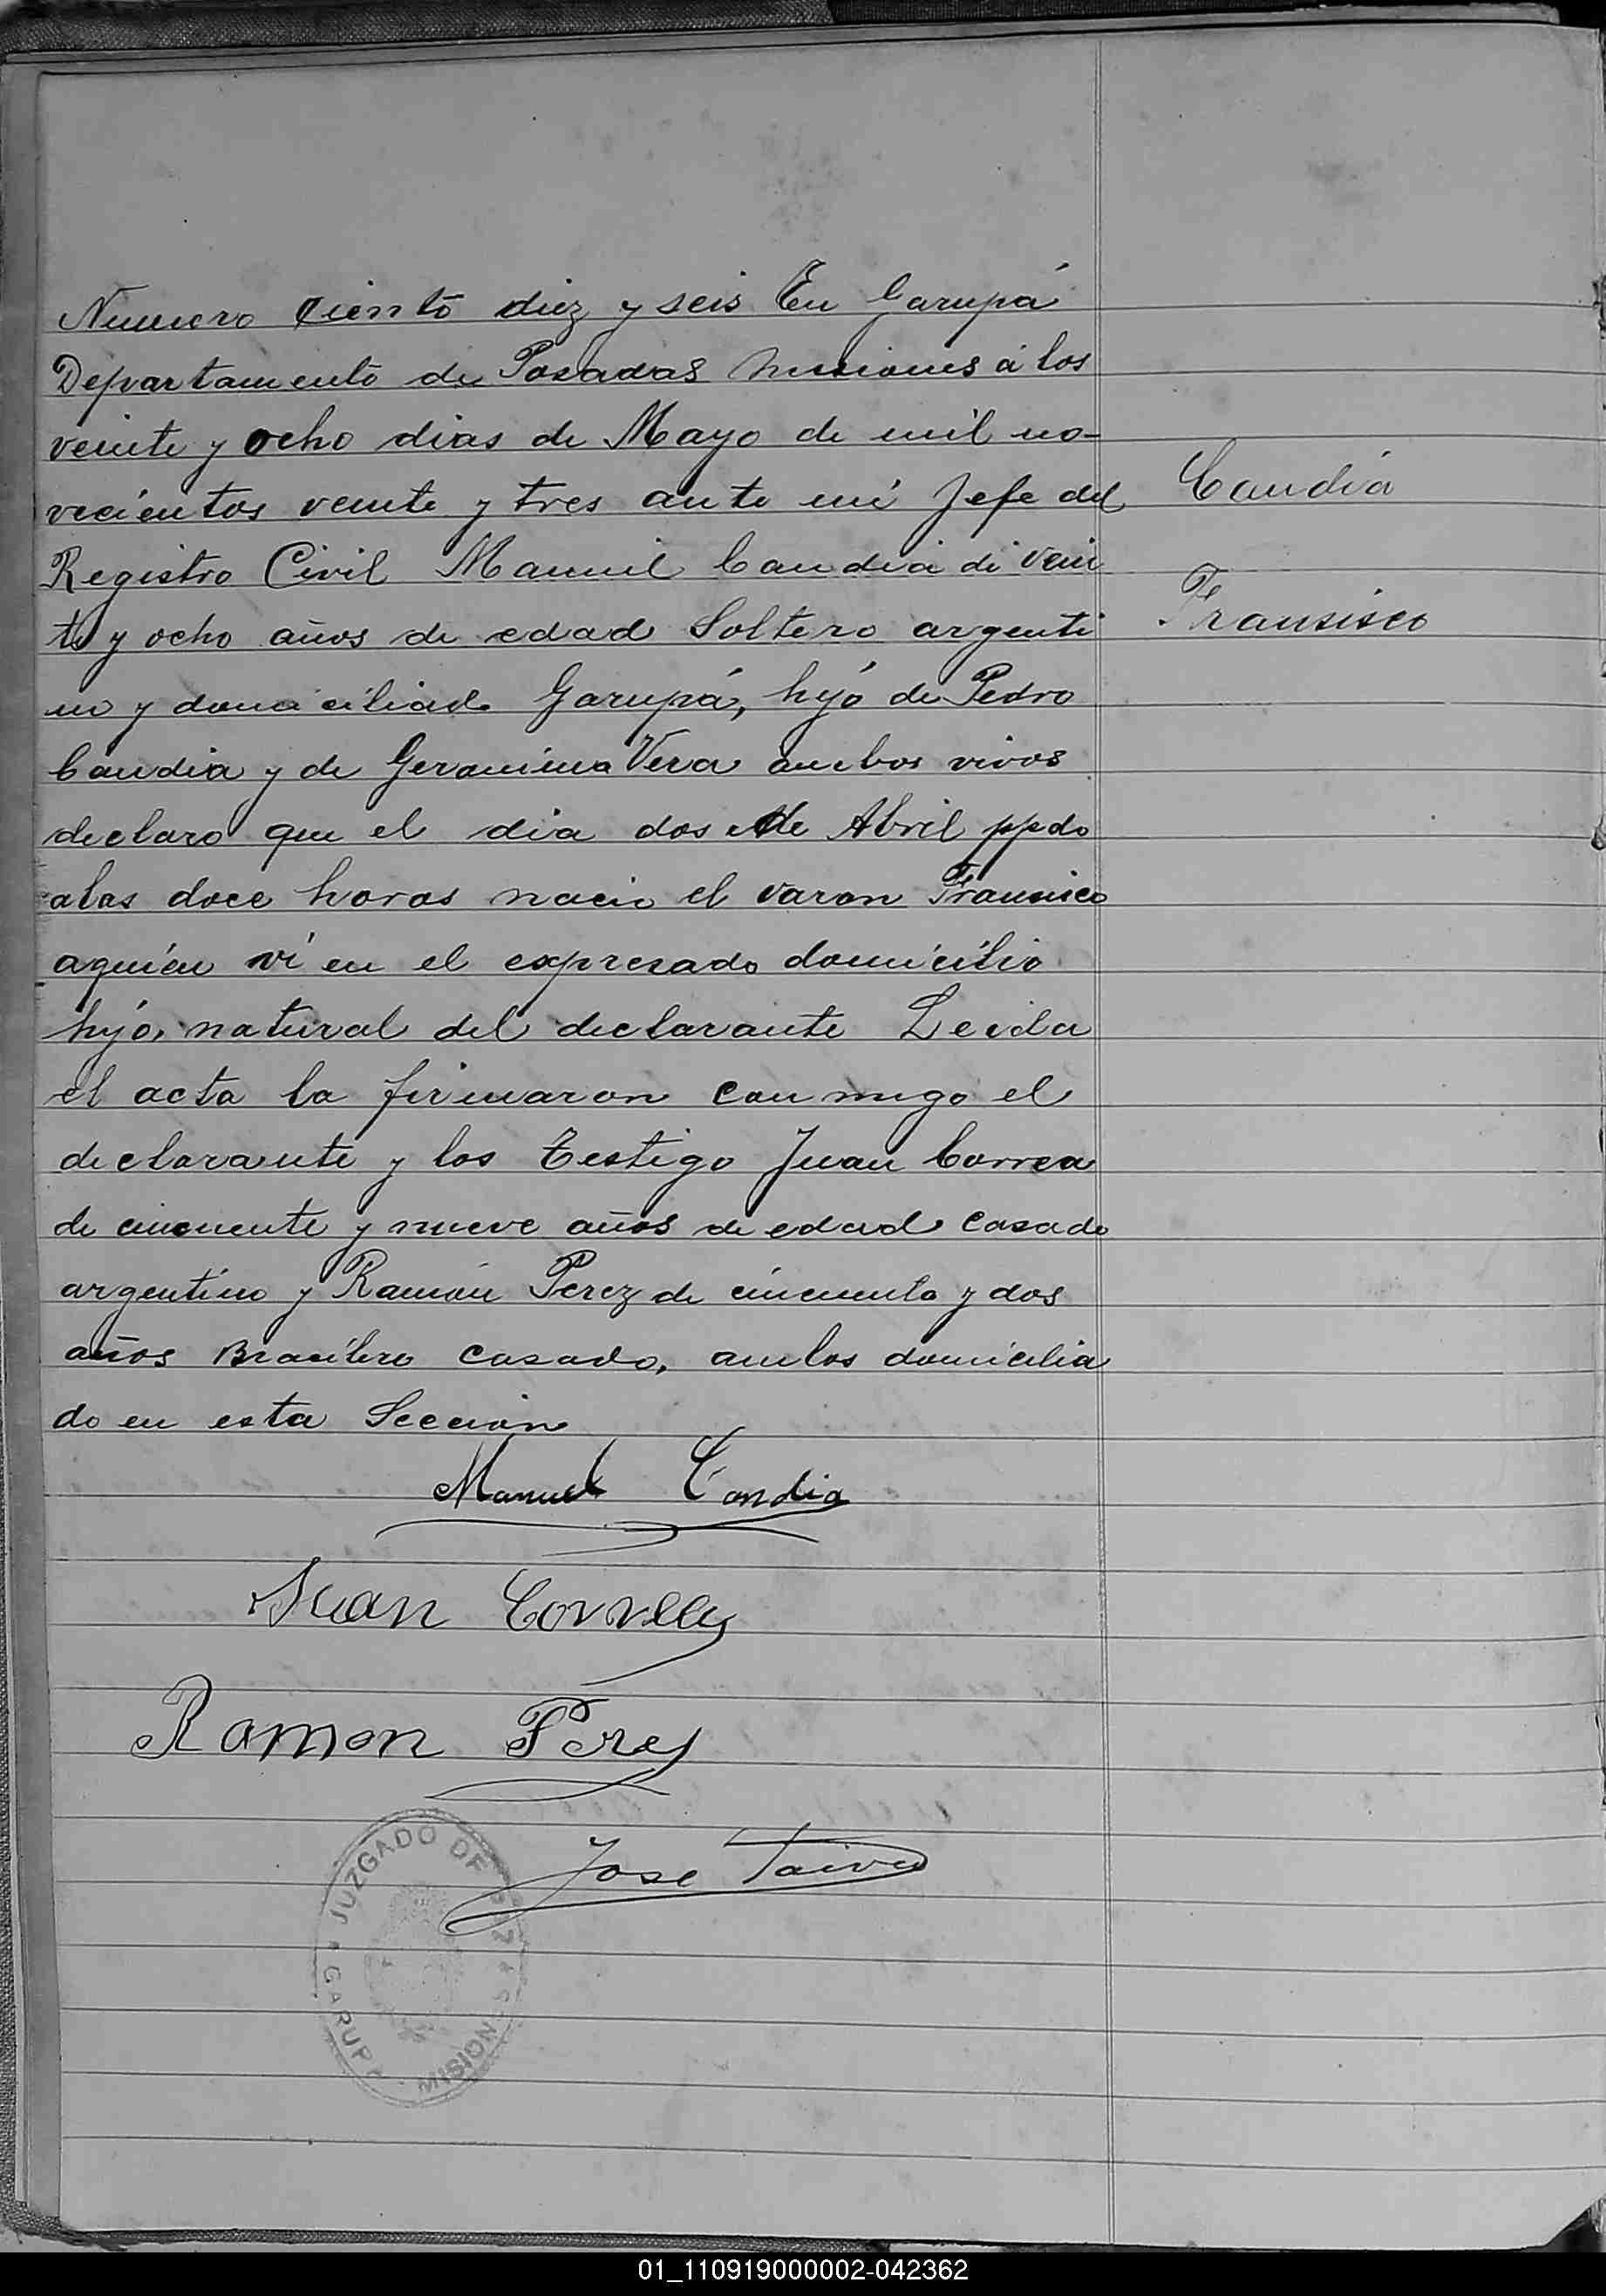 Numero ciento diez y seis En Garupá
Departamento de Posadas Misiones á los
veinte y ocho dias de Mayo de mil no-
vecientos veinte y tres ante mi Jefe del
Registro Civil Manuel Candia de vein
te y ocho años de edad Soltero argenti
no y domiciliado Garupá, hijo de Pedro
Candia y de Geronima Vera ambos vivos
declaro que el dia dos de Abril ppdo
a las doce horas nacio el varon Fransisco
aquien vi en el expresado domicilio
hijo natural del declarante Leida
el acta la firmaron conmigo el
declarante y los testigo Juan Correa
de cincuente y nueve años de edad casado
argentino y Ramón Perez de cincuenta y dos
años Brasilero casado, ambos domicilia
do en esta Seccion
Candia
Fransisco
Manuel Candia
Juan Correa
Ramon Perez
Jose
JUZGADO DE PAZ
GARUPA MISIONES
01_110919000002-042362